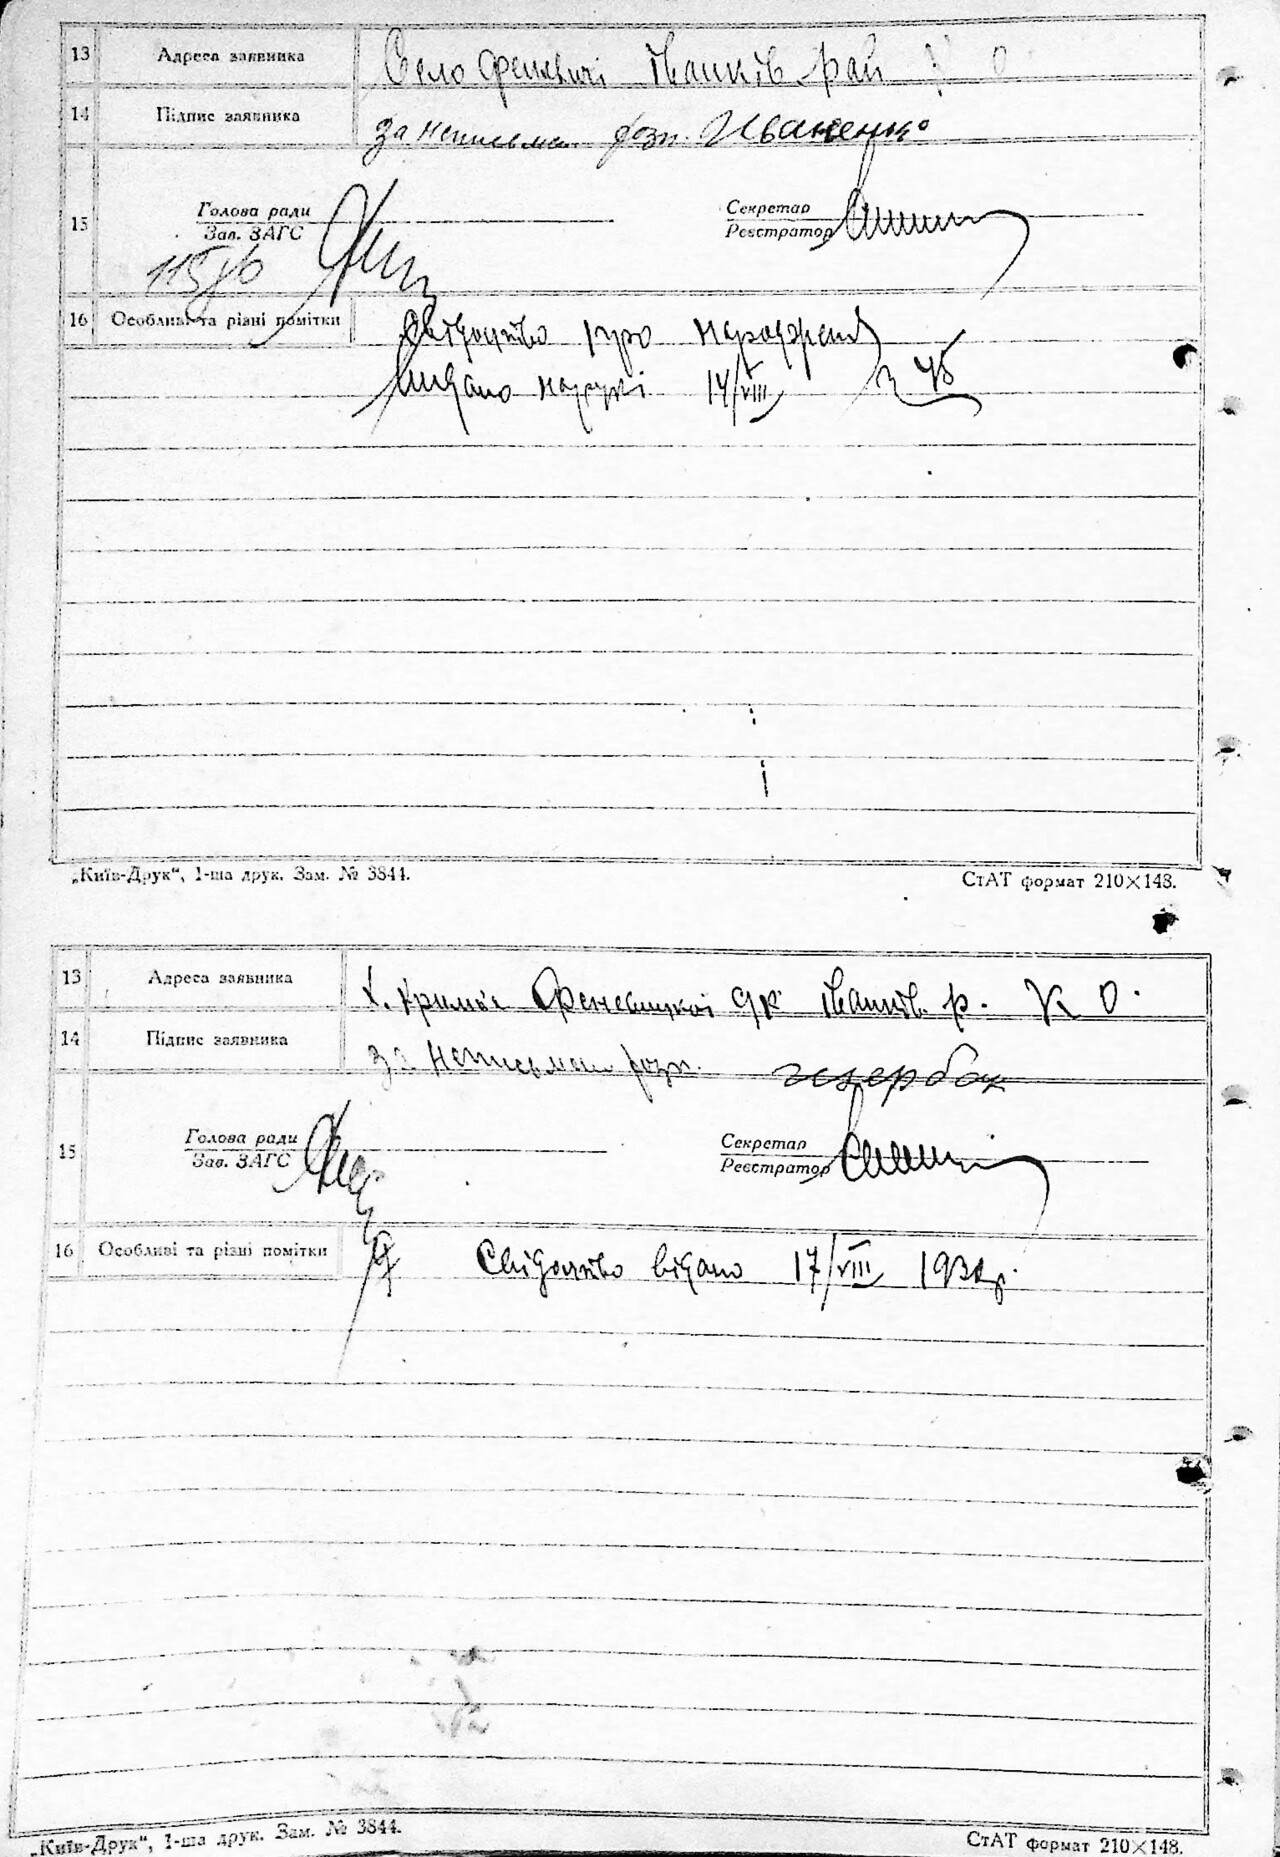 13 Адреса заявника Село Феневичі Іванків рай К О
14 Підпис заявника за неписьмен розп. Иваненко
15 Голова ради Секретар
Зав. ЗАГС Реєстратор
16 Особливі та різні помітки Свідоцтво про народження
видано на руки 14/VIII
„Київ-Друк“, 1-ша друк. Зам. № 3844. СтАТ формат 210×148.
13 Адреса заявника х. Кримка Феневицкої с/р Іванків. р. К О.
14 Підпис заявника за неписьмен розп. щербак
15 Голова ради Секретар
Зав. ЗАГС Реєстратор
16 Особливі та різні помітки Свідоцтво видано 17/VIII
„Київ-Друк“, 1-ша друк. Зам. № 3844. СтАТ формат 210×148.